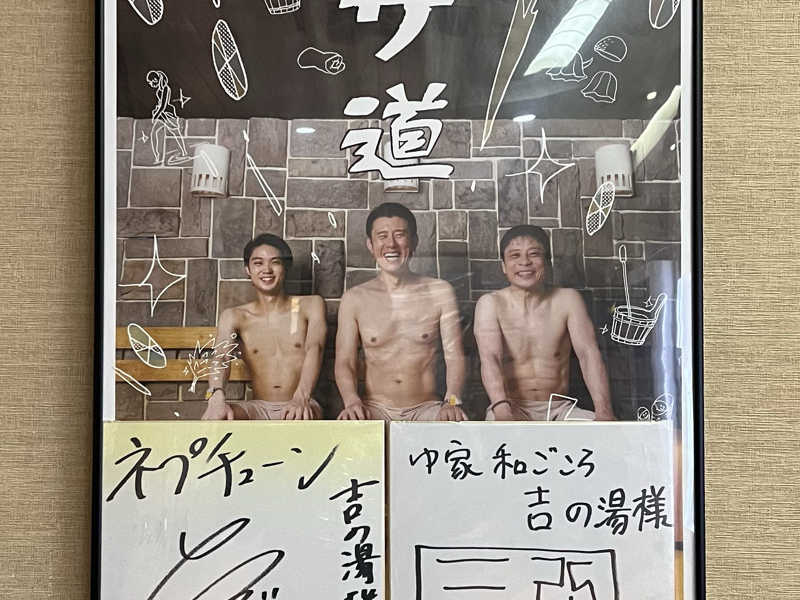 サ道
ネプチューン
吉の湯様
ゆ家 和ごころ
吉の湯様